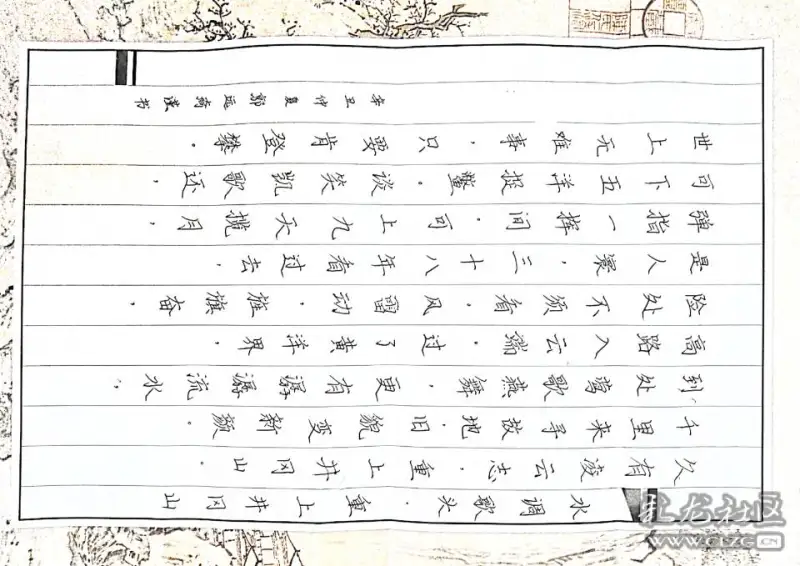 水调歌头，重上井冈山
久有凌云志，重上井冈山。
千里来寻故地，旧貌变新颜。
到处莺歌燕舞，更有潺潺流水，
高路入云端，过了黄洋界，
险处不须看，风雷动，旌旗奋，
是人寰，三十八年看过去。
弹指一挥间，可上九天揽月，
可下五洋捉鳖，谈笑凯歌还，
世上无难事，只要肯登攀。
辛丑仲夏郭远书
龙社区